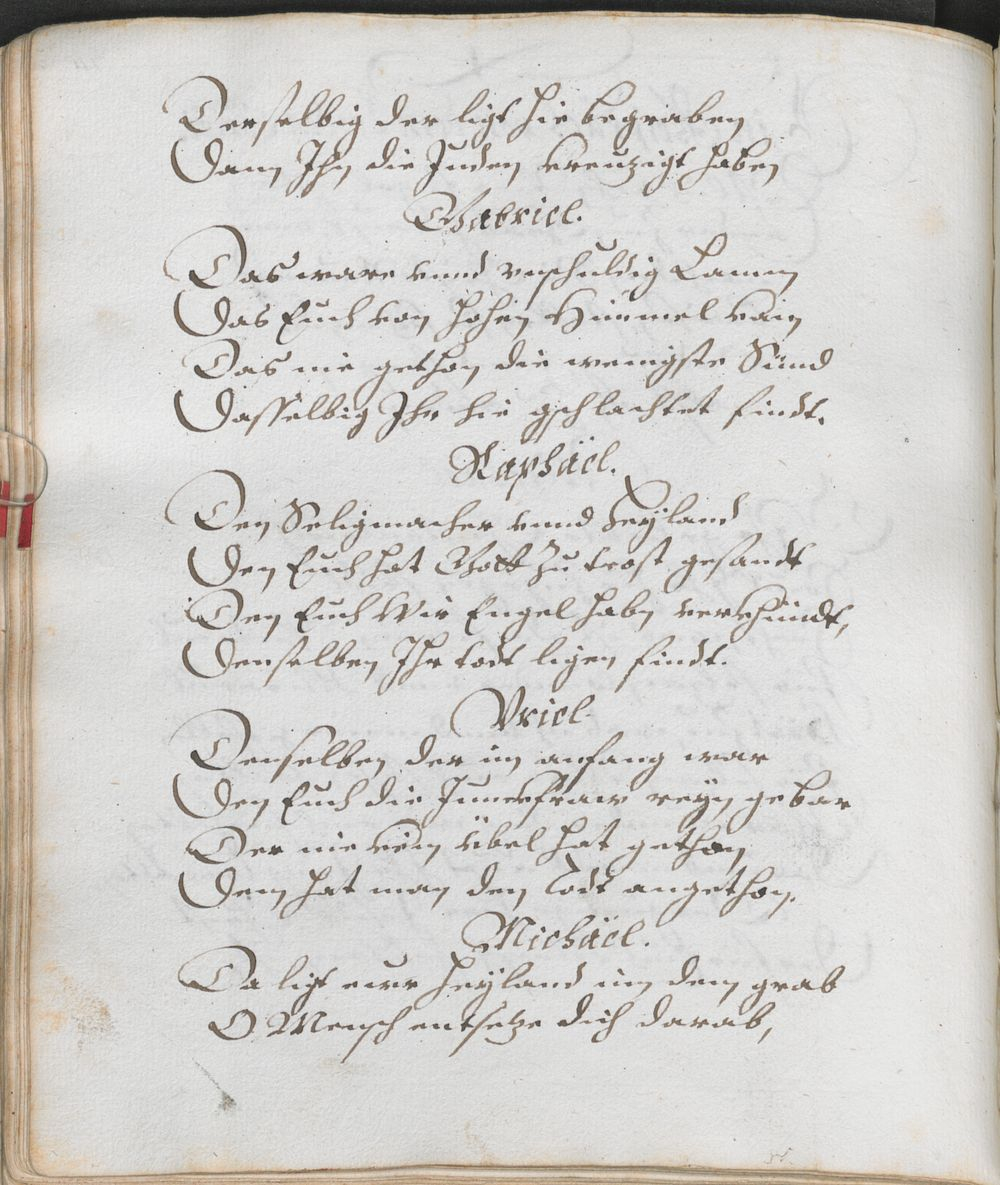 Derselbig der ligt hie begraben
Dann Ihn die Juden kreuzigt haben
Gabriel.
Das ware vnnd vnschuldig Lamm
Das Euch von hohen Himmel kam
Das nie gethon die wenigste Sünd
Dasselbig Ihr hie gschlachtet findt.
Raphaël.
Den Seligmacher vnnd Heyland
Den Euch hat Gott zu trost gesandt
Den Euch Wir Engel habn verkhündt,
Denselben Ihr todt ligen findt.
Vriel
Denselben der im anfang war
Den Euch die Junckfraw reyn gebar
Der nie kein übel hat gethon
Dem hat man den Todt angethon.
Michaël.
Da ligt eur Heyland inn dem grab
O Mensch entsetze dich darab,